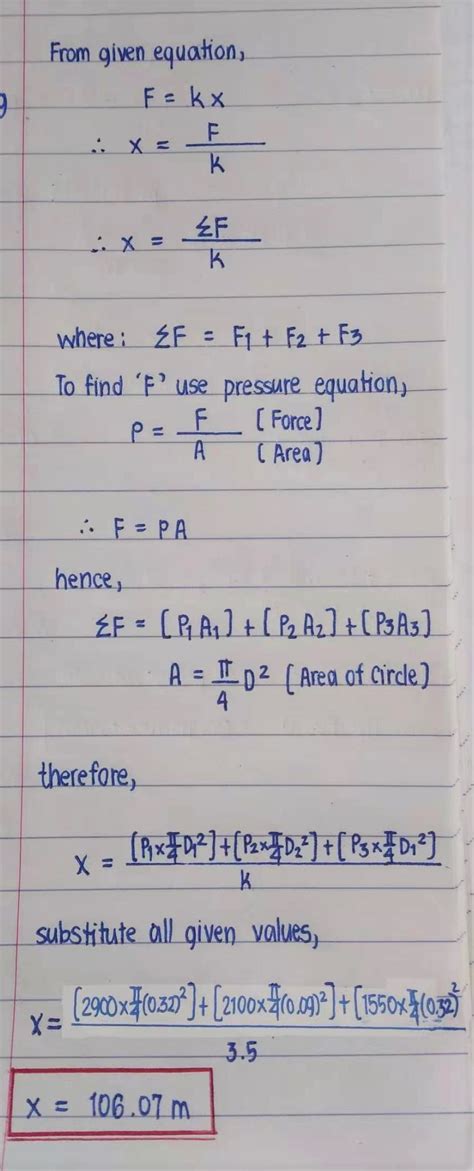 From given equation,
F = kx
∴ x = F / k
∴ x = ΣF / k
where: ΣF = F1 + F2 + F3
To find 'F' use pressure equation,
P = F / A [Force] [Area]
∴ F = PA
hence,
ΣF = [P1A1] + [P2A2] + [P3A3]
A = π/4 D² [Area of Circle]
therefore,
x = [P1×π/4D1²]+[P2×π/4D2²]+[P3×π/4D1²] / k
substitute all given values,
x = [2900×π/4(0.32)²]+[2100×π/4(0.09)²]+[1550×π/4(0.32)² / 3.5
x = 106.07 m